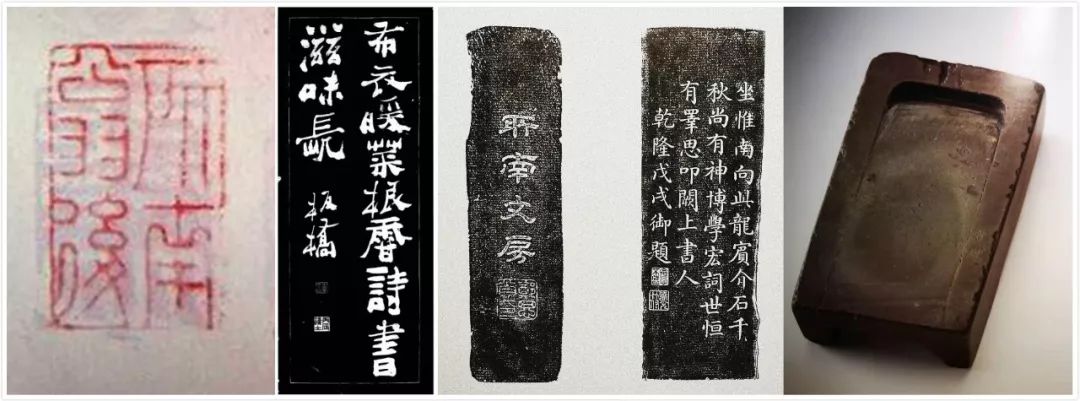 所南
翁後
布衣暖菜根香詩書
滋味長
板橋
所南文房
坐惟南向此龍賓介石千
秋尚有神博學宏詞世恒
有睪思叩闕上書人
乾隆戊戌御題